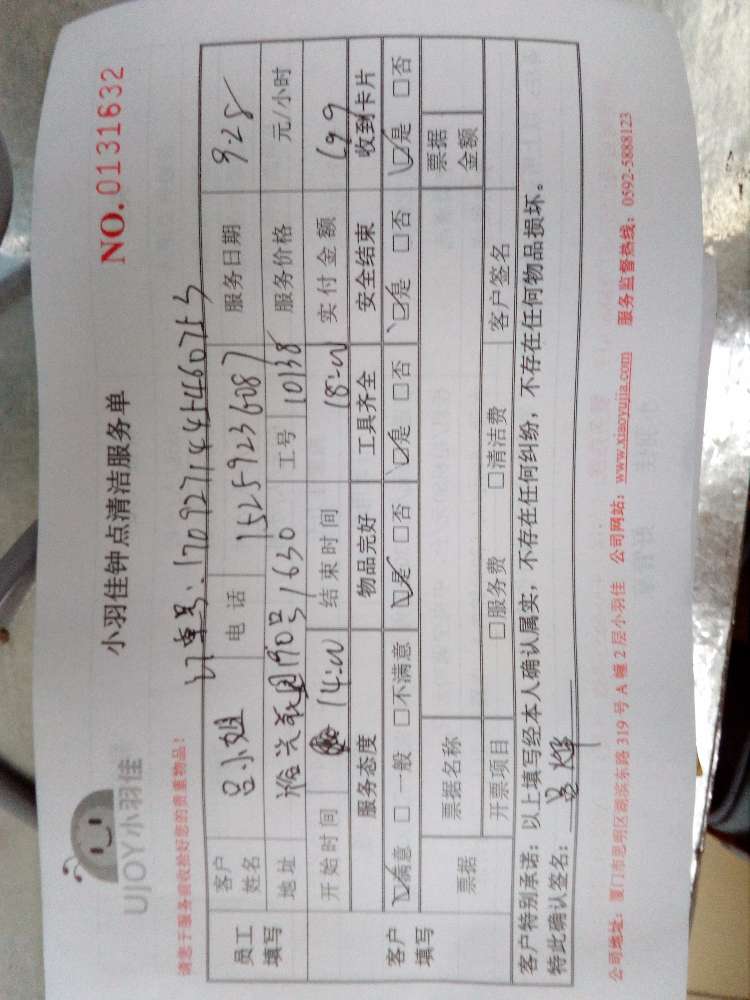 UJOY小羽佳
小羽佳钟点清洁服务单
NO.0131632
请您于服务前收捡好您的贵重物品！
订单号:170927144454607253
员工填写 客户姓名 吕小姐 电话 15259236087 服务日期 9.28
地址 190号1630 工号 10138 服务价格 元/小时
客户填写 开始时间 14:00 结束时间 18:00 实付金额 199
服务态度 物品完好 工具齐全 安全结束 收到卡片
☑满意 □一般 □不满意 ☑是 □否 ☑是 □否 ☑是 □否 ☑是 □否
票据 票据名称 票据金额
开票项目 □服务费 □清洁费 客户签名
客户特别承诺：以上填写经本人确认属实，不存在任何纠纷，不存在任何物品损坏。
特此确认签名：
公司地址：厦门市思明区湖滨东路 319 号 A 幢 2 层小羽佳 公司网站：www.xiaoyujia.com 服务监督热线：0592-5888123